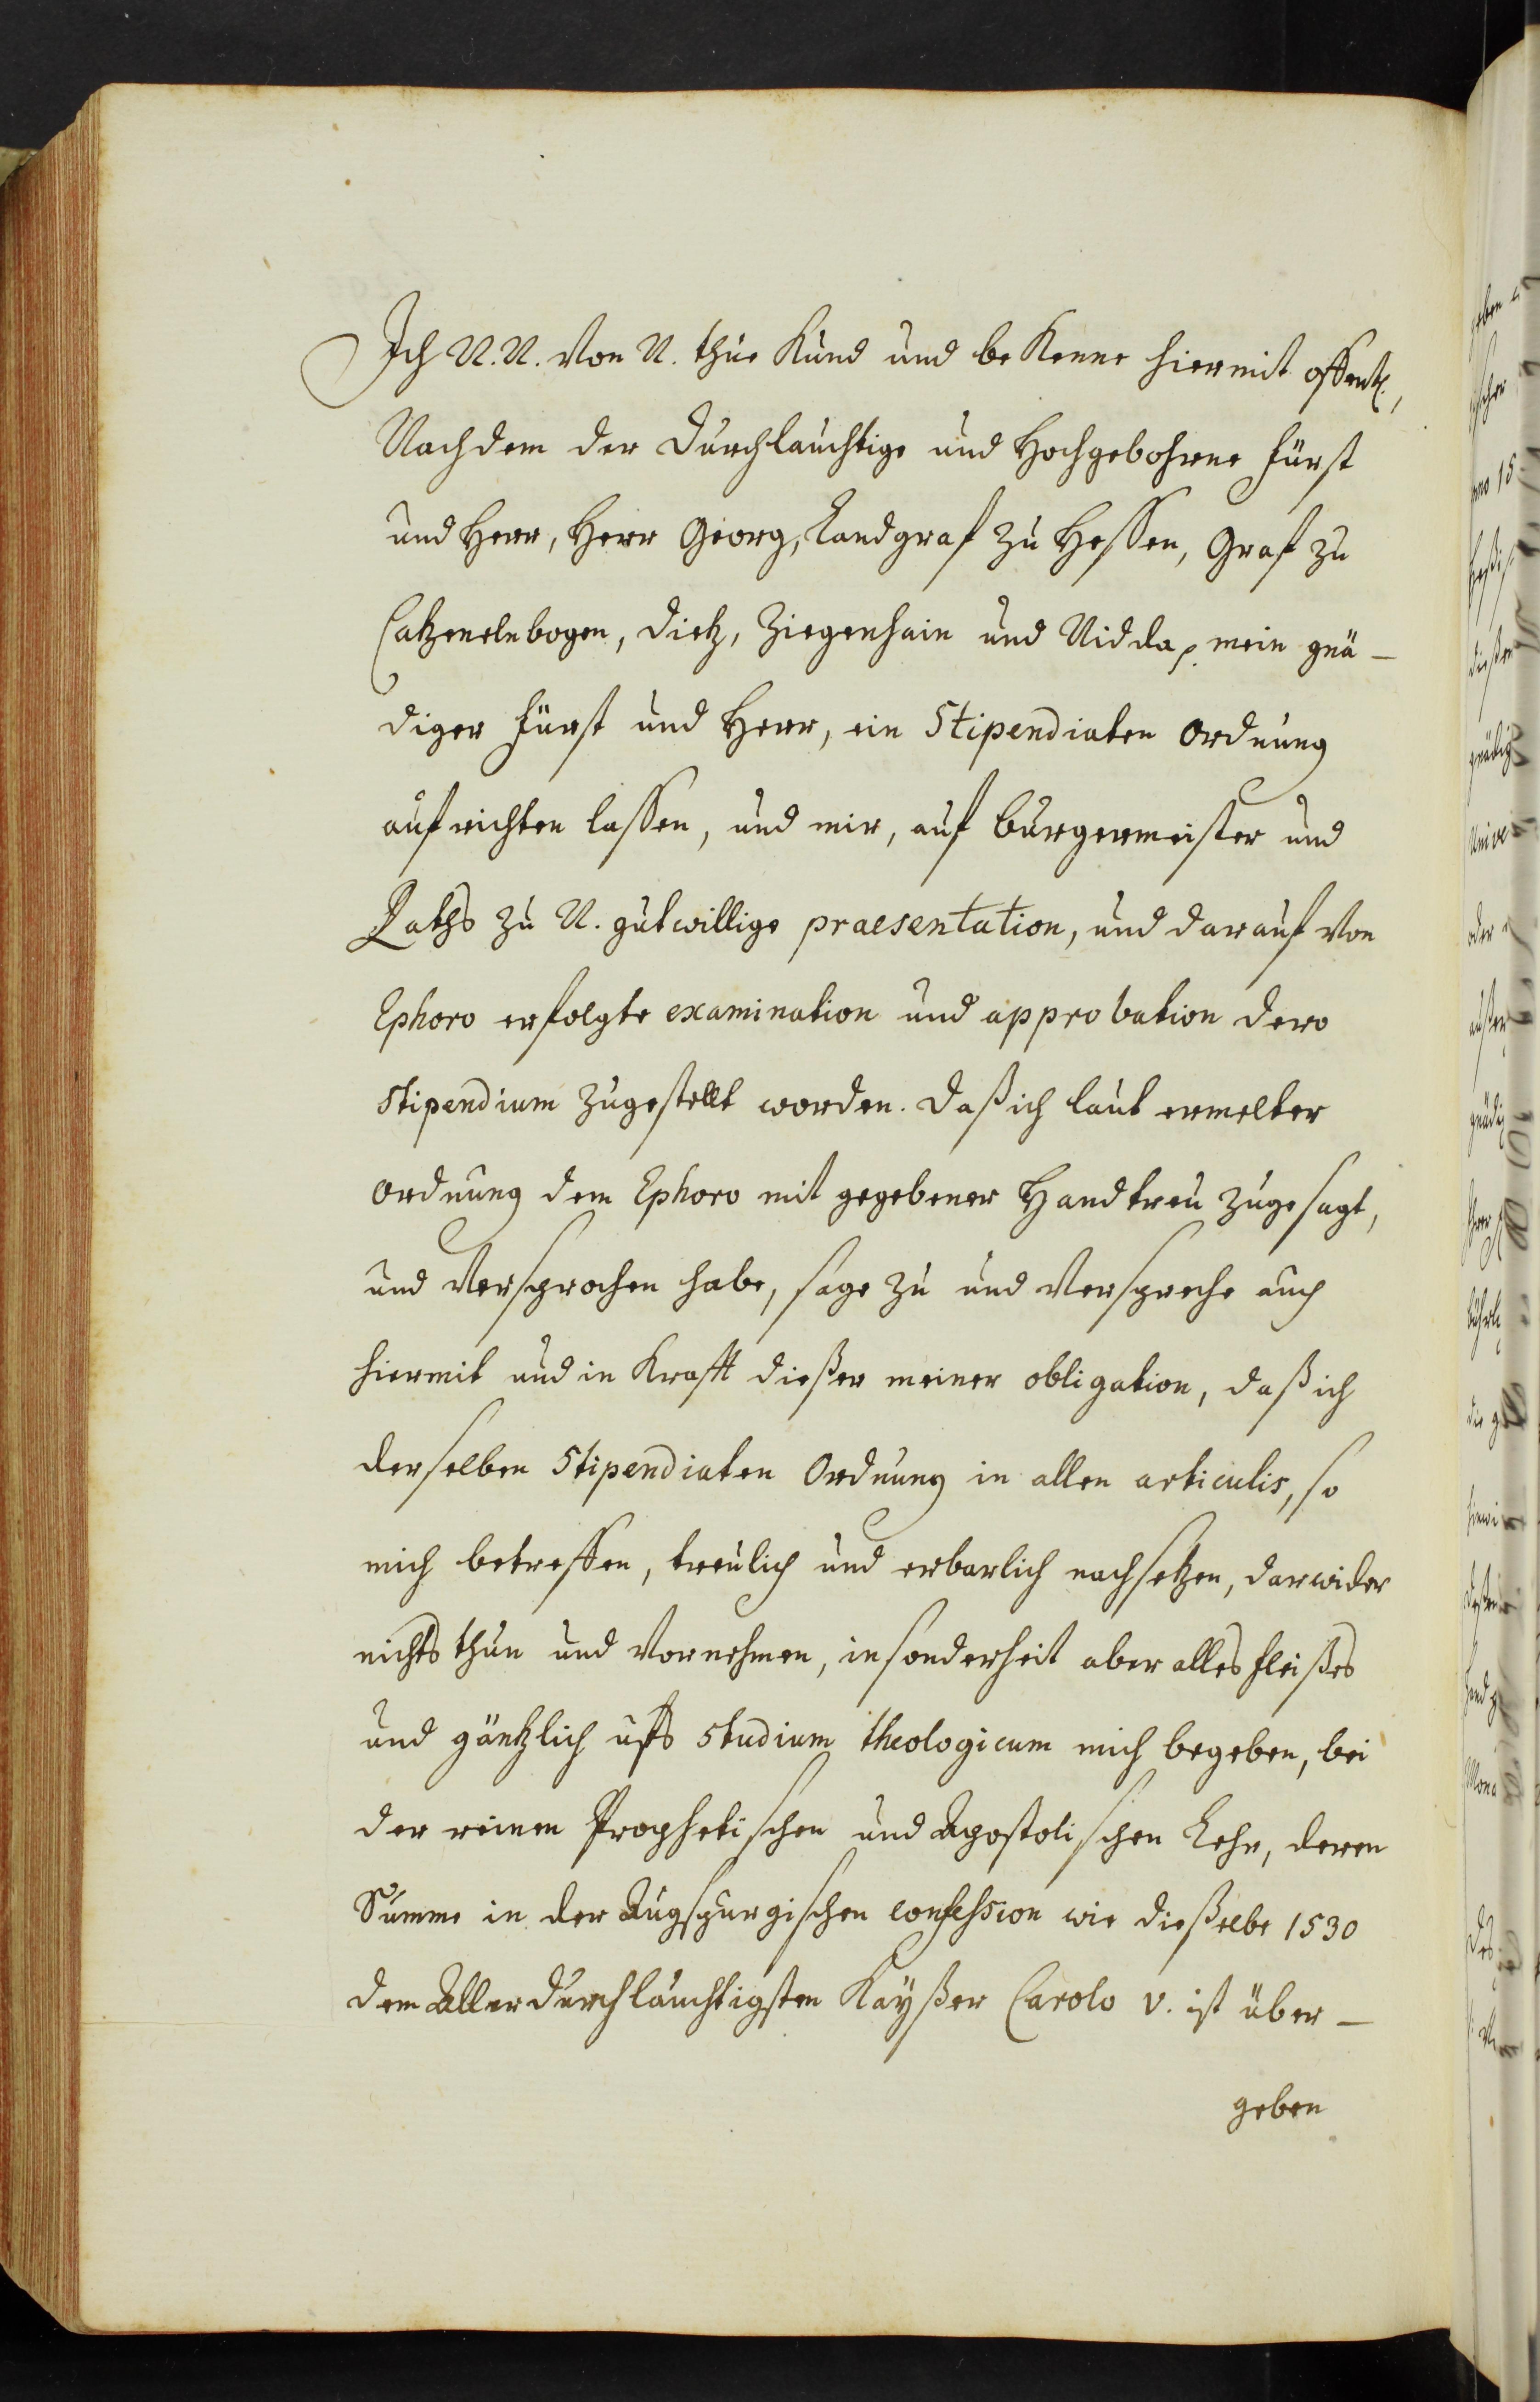 Ich N. N. von N. thue Kund und be Kenne hiermit offentl.,
Nachdem der Durchlauchtige und Hochgebohrne Fürst
und Herr, Herr Georg, Landgraf zu Hessen, Graf zu
Catzenelnbogen, Dietz, Ziegenhain und Nidda, mein gnä-
diger Fürst und Herr, ein Stipendiaten Ordnung
aufrichten lassen, und mir, auf burgermeister und
Raths zu N. gutwillige praesentation, und darauf von
Ephoro erfolgte examination und approbation dero
Stipendium zugestellt worden. Daß ich laut ermelter
Ordnung dem Ephoro mit gegebener Handtreu zugesagt,
und versprochen habe, sage zu und verspreche auch
hiermit und in Krafft dießer meiner obligation, daß ich
derselben Stipendiaten Ordnung in allen articulis, so
mich betreffen, treulich und erbarlich nachsetzen, darwider
nichts thun und vornehmen, insonderheit aber alles fleißes
und gäntzlich ufs studium theologicum mich begeben, bei
der reinen Prophetischen und Apostolischen Lehr, deren
Summe in der Augspurgischen confession wie dießelbe 1530
dem Allerdurchläuchtigsten Kayßer Carolo V. ist über-
geben